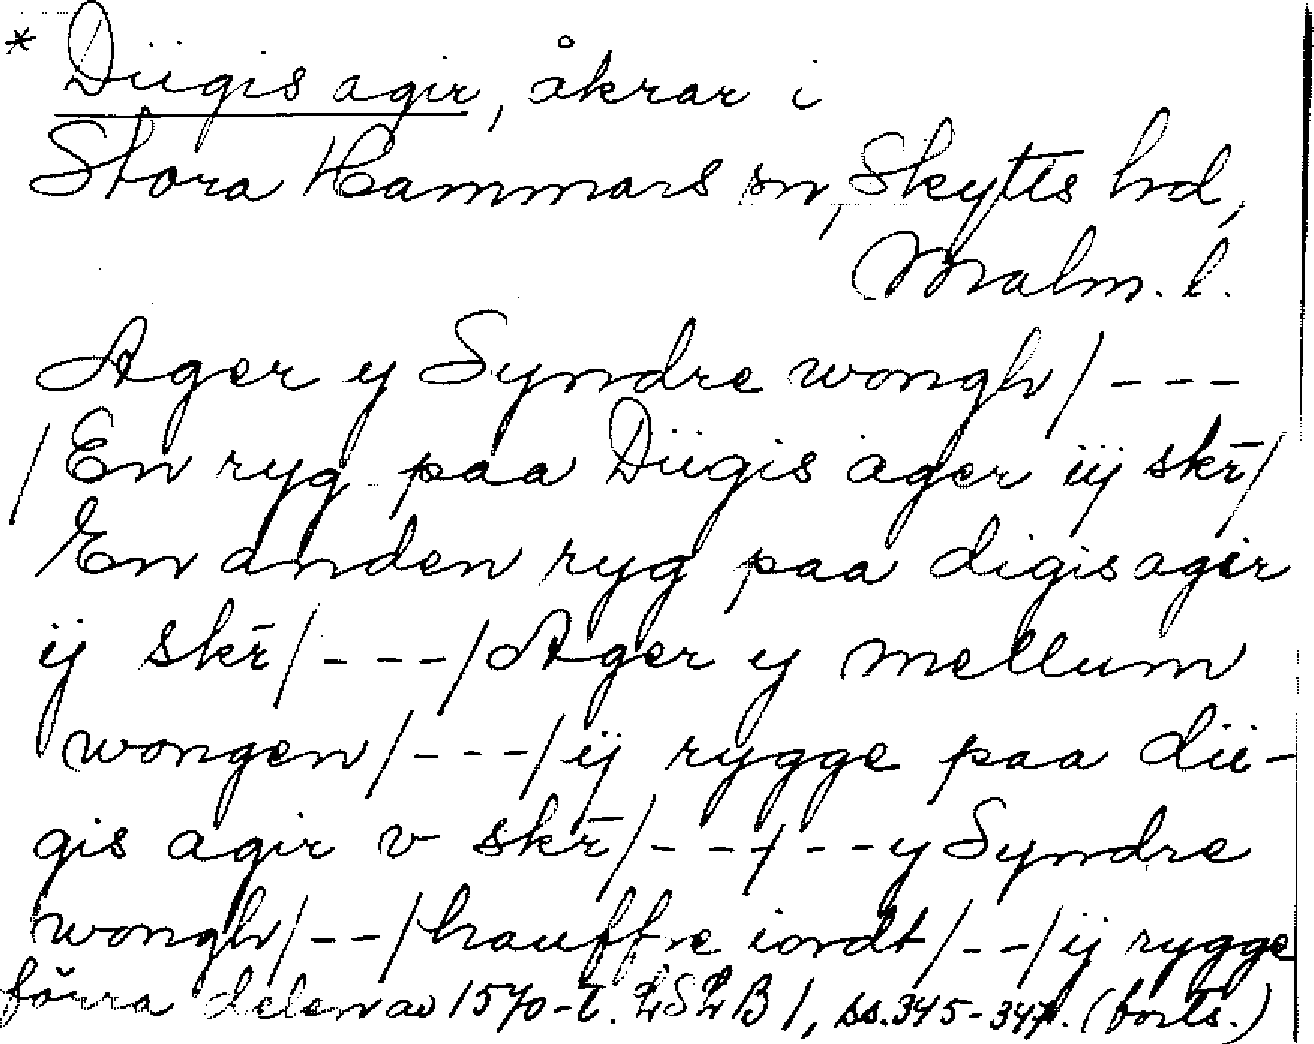 * Diigis agir, åkrar i
Stora Hammars sn, Skytts hd,
Malm. l.
Ager y Syndre wongh/---
/En ryg paa Diigis ager iij skr̄/
En anden ryg paa digis agir
ij skr̄/---/Ager y mellum
wongen/---/ij rygge paa dii-
gis agir v skr̄/---/--y Syndre
wongh/--/hauffre iordt/--/ij rygge
förra delen av 1570-t. LSLB 1, ss. 345-347. (forts.)